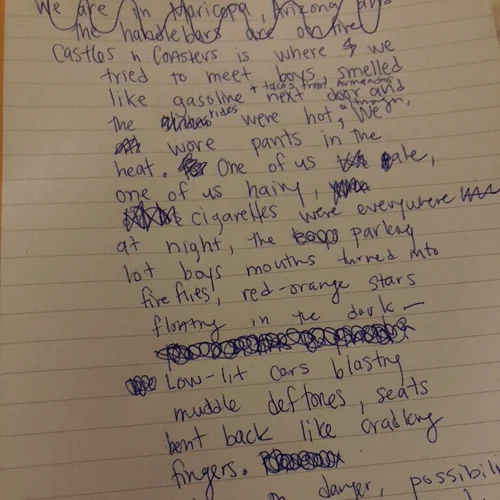 We are in Maricopa, Arizona and
the handlebars are on fire
Castles n Coasters is where we
tried to meet boys smelled
+ tacos from Armando's
like gasoline next door and
the rides were hot, We
wore pants in the
heat. One of us pale,
one of us hairy,
cigarettes were everywhere
at night, the parking
lot boys mouths turned into
fireflies, red-orange stars
floating in the dark —
Low-lit cars blasting
muddle deftones, seats
bent back like cradling
fingers.
danger, possibili